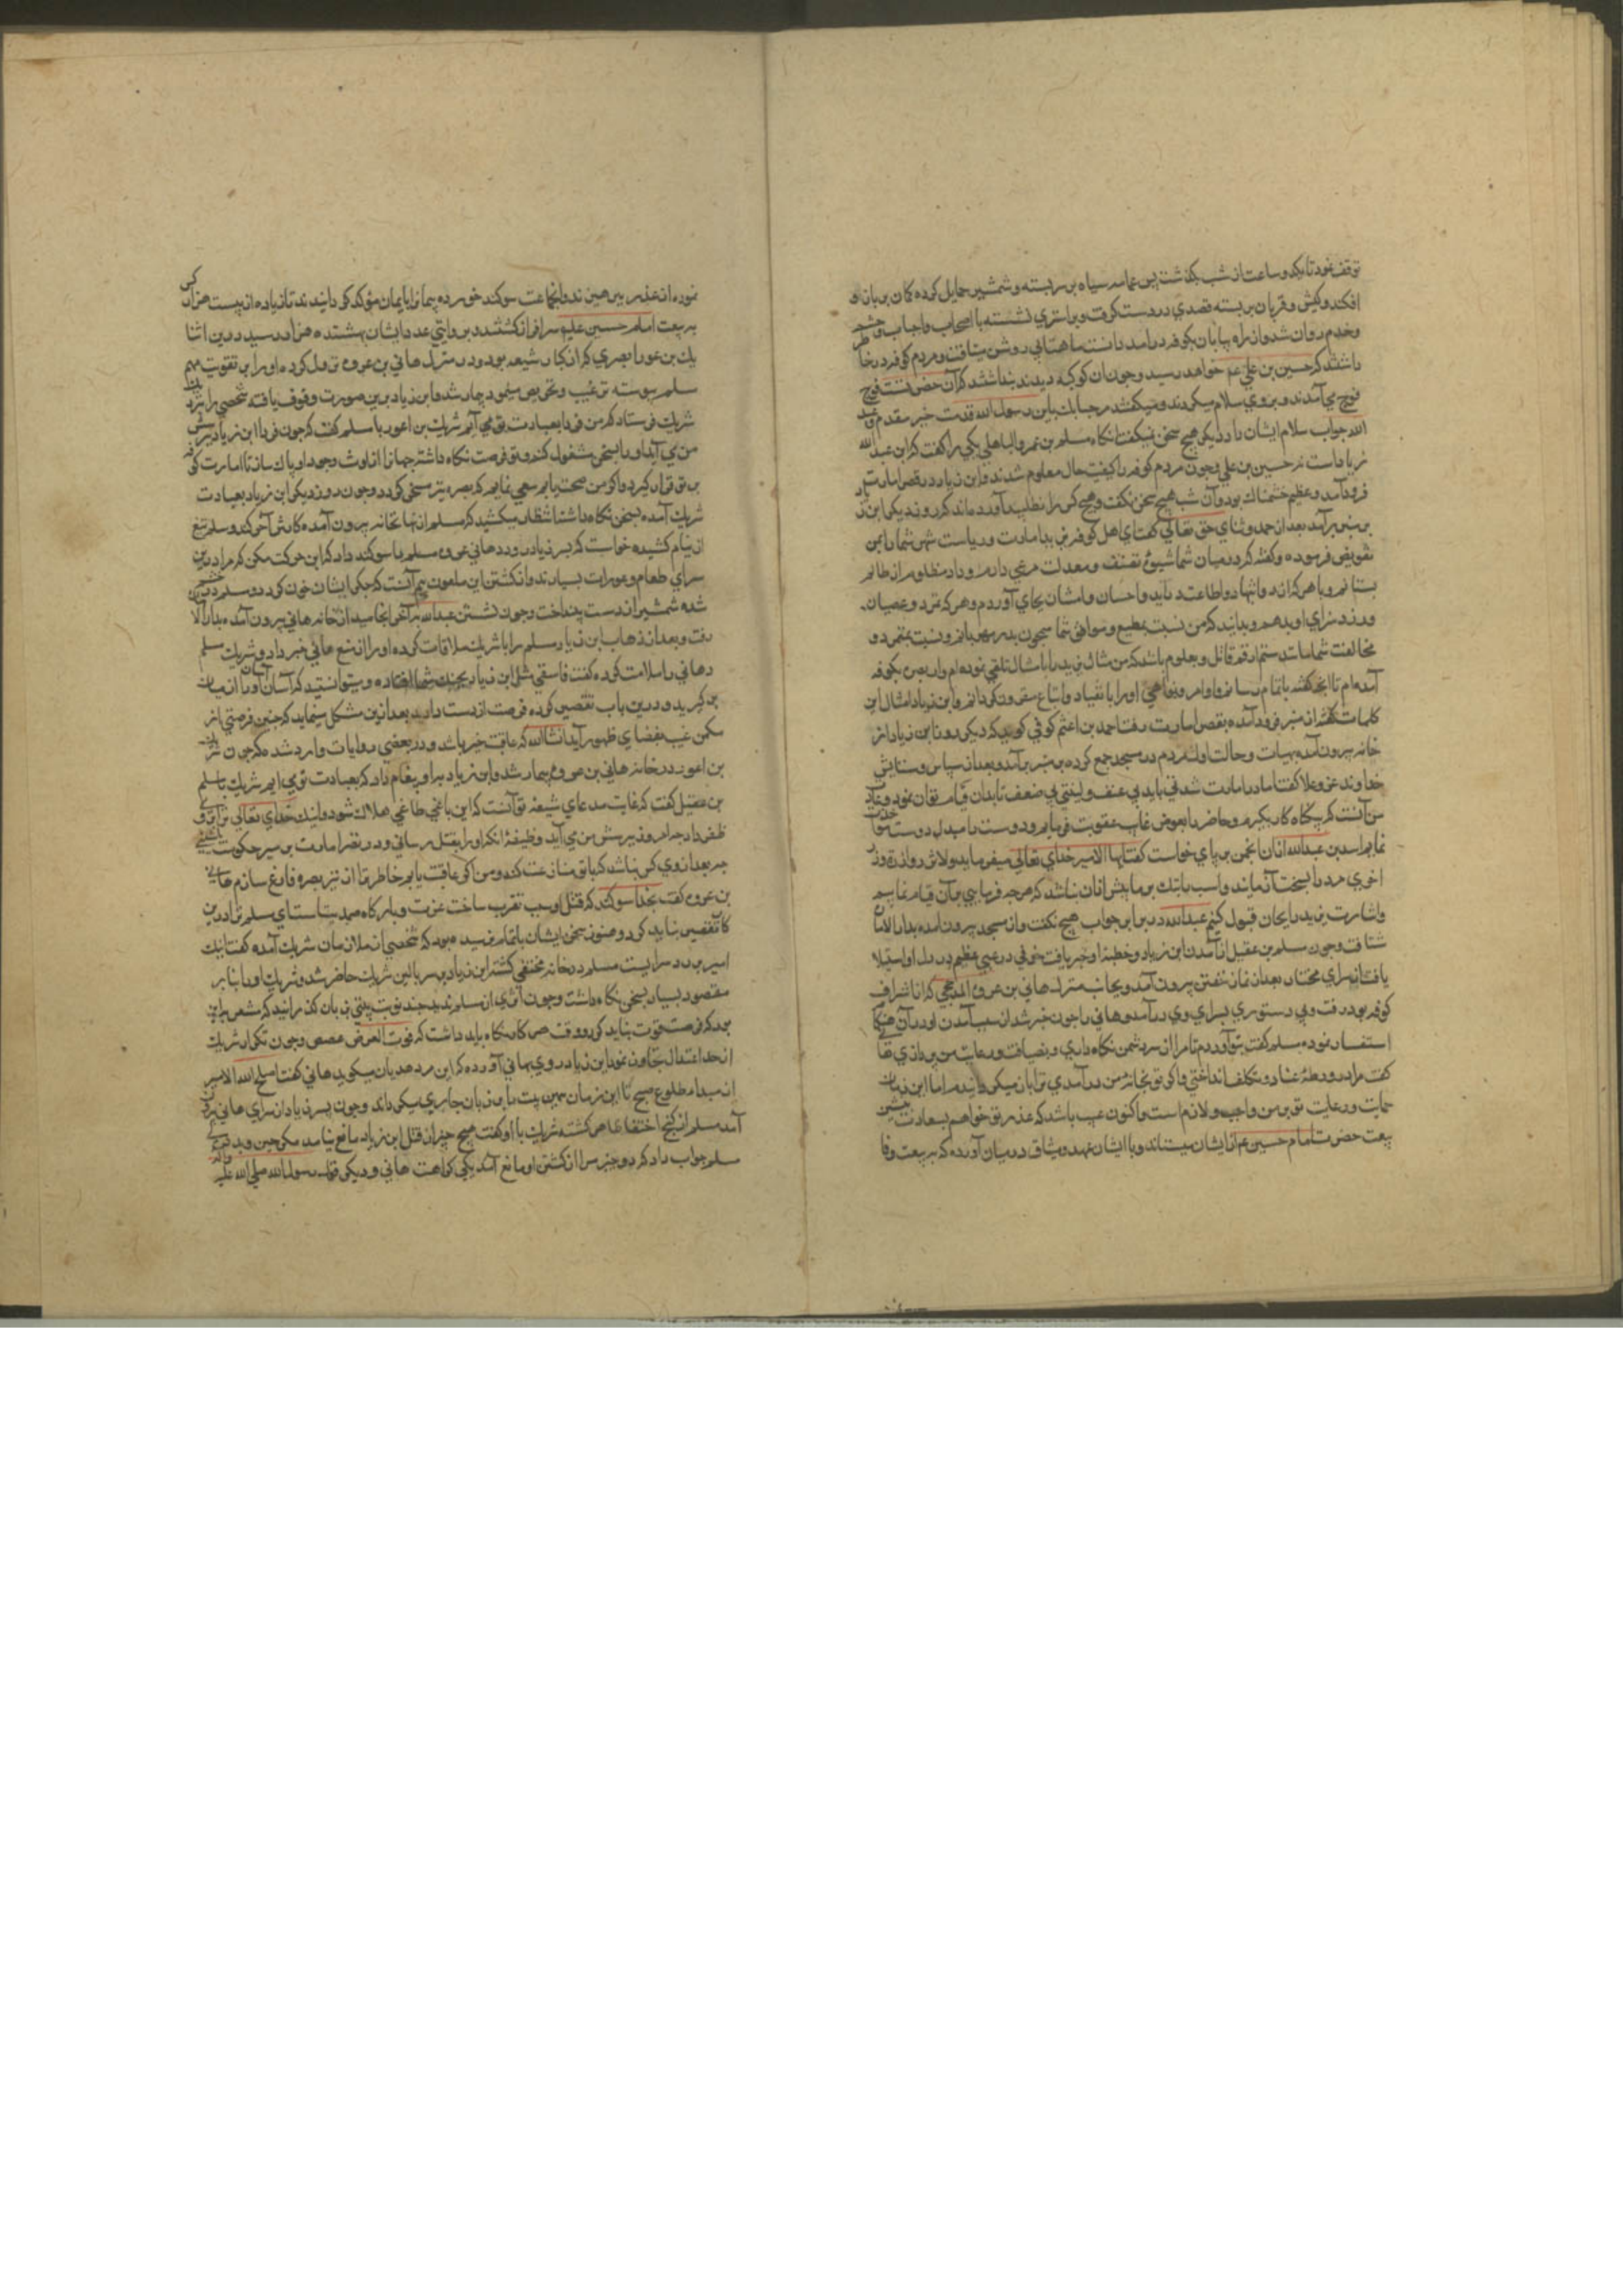 توقف نمود تا یکدو ساعت از شب بگذشت پس عمامه سیاه بر سر بسته و شمشیر حمایل کرده کمان بر بازو
افکند و کیش و قربان بر بسته قصدی در دست گرفت و بر استری نشسته با اصحاب و احباب و حشم
و خدم روان شد و از راه بیابان بکوفه درآمد و آن شب ماهتابی روشن میتافت و مردم کوفه در خا
داشتند که حسین بن علی عم خواهد رسید و چون آن کوکبه دیدند پنداشتند که آن حضرتست فوج
فوج می آمدند و بر وی سلام میکردند و میگفتند مرحبا بک یا بن رسول الله قدمت خیر مقدم و عبید
الله جواب سلام ایشان داد دیگر هیچ سخن نمیگفت تا نکاه مسلم بن عمرو الباهلی یکی را گفت که این عبید الله
زیاد است نه حسین بن علی و چون مردم کوفه را کیفیت حال معلوم شد و ابن زیاد در قصر امارت
فرود آمد و عظیم خشمناک بود و آن شب هیچ سخن نگفت و هیچ کس را نطلبید آورده اند که روز دیگر ابن زیاد
بر منبر برآمد بعد از حمد و ثنای حق تعالی گفت ای اهل کوفه یزید امارت و ریاست شهر شما را بمن
تفویض فرموده و گفته که در میان شما شیوه نصفت و معدلت مرعی دارم و داد مظلوم از ظالم
بستانم و با هر که از در انقیاد و اطاعت در آید احسان و امتنان بجای آوردم و هر که تمرد و عصیان
ورزد سزای او بدهم و بدانید که من نسبت بمطیع و موافق شما همچون پدر مهربانم و نسبت بمتمرد و
مخالفت شما مانند سم قاتل و معلوم باشد که من مثال یزید را بامتثال تلقی نموده ام و از بصره بکوفه
آمده ام تا آنچه گفته باتمام رسانم و اوامر و نواهی او را بانقیاد و اتباع مقرون گردانم و ابن زیاد امثال این
کلمات گفته از منبر فرود آمده بقصر امارت رفت احمد بن اعثم کوفی گوید که دیگر روز ابن زیاد از
خانه بیرون آمده بهیات و حالت اول مردم در مسجد جمع کرده بر منبر برآمد و بعد از سپاس و ستایش
خداوند عز و علا گفت اما در امارت شدتی باید بی عنف و لینتی بی ضعف تا بدان قیام توان نمود و عادت
من آنست که بیگناه را بگناه کار بگیرم و حاضر را بعوض غایب عقوبت فرمایم و دوست را مبدل دوست مواخذت
نمایم اسد بن عبدالله از آن انجمن بر پای خواست گفت ایها الامیر خدای تعالی میفرماید ولا تزر وازرة وزر
اخری مرد را بسخت آزمایند و اسب را بتک بر ما بیش ازان نباشد که هر چه فرمایی بر آن قیام نماییم
و اشارت یزید را بجان قبول کنیم عبدالله در برابر جواب هیچ نگفت و از مسجد بیرون آمده بدار الاماره
شتافت و چون مسلم بن عقیل از آمدن ابن زیاد و خطبه او خبر یافت خوفی و رعبی عظیم بر دل او استیلا
یافت از سرای مختار بعد از نماز خفتن بیرون آمد و بجانب منزل هانی بن عروة المذحجی که از اشراف
کوفه بود رفت و بی دستوری بسرای وی درآمد و هانی را چون خبر شد از سبب آمدن او در آن هنگام
استفسار نموده مسلم گفت بتو آوردم تا مرا از سر دشمن نگاه داری و بضیافت و رعایت من پردازی هانی
گفت مرا در ورطه عنا و تکلف انداختی و اگر تو بخانه من در نیامدی ترا باز میگردانیدم اما این زمان
حمایت و رعایت تو بر من واجب و لازم است و اکنون عیب باشد که عذر تو خواهم بسعادت بنشین
بیعت حضرت امام حسین عم از ایشان میستاند و با ایشان عهد و میثاق در میان آورده که بر بیعت وفا
نموده از عذر بپرهیزند و آن جماعت سوگند خورده پیمان را بایمان مؤکد گردانیدند تا زیاده از بیست هزار کس
به بیعت امام حسین علیه سرافراز کشتند و بروایتی عدد ایشان بهشتده هزار رسید و درین اثنا
یک بن عور بصری که از کبار شیعه بود و در منزل هانی بن عروه نزول کرده او را بر تقویت مهم
مسلم پیوسته ترغیب و تحریص مینمود بیمار شد و ابن زیاد برین صورت وقوف یافته شخصی را نزد
شریک فرستاد که من فردا بعیادت تو می آیم شریک بن اعور با مسلم گفت که چون فردا ابن زیاد بپرسش
من می آید او را بسخن مشغول کنم و تو فرصت نگاه داشته جهان را از لوث وجود او پاک ساز تا امارت کوفه
بر تو قرار گیرد و اگر من صحت یابم سعی نمایم که بصره نیز مسخر گردد و چون روز دیگر ابن زیاد بعیادت
شریک آمده بسخن نگاه داشت انتظار میکشید که مسلم از نهانخانه بیرون آمده کارش آخر کند و مسلم تیغ
از نیام کشیده خواست که بسر زیاد رود هانی عروه مسلم را سوگند داد که این حرکت مکن که مرا درین
سرای طعام و عورات بسیارند و از کشتن این ملعون بیم آنست که جگر ایشان خون گردد و مسلم
شده شمشیر از دست بینداخت و چون نشستن عبدالله بآخر انجامید از خانه هانی بیرون آمده بدار الا
رفت و بعد از ذهاب ابن زیاد مسلم را با شریک ملاقات کرده او را از منع هانی خبر داد و شریک مسلم
و هانی را ملامت کرده گفت فاسقی مثل ابن زیاد بچنگ شما افتاده و میتوانستید که آسان او را از میان
بر گیرید و درین باب تقصیر کرده فرصت از دست دادید بعد ازین مشکل مینماید که چنین فرصتی از
مکمن غیب بفضای ظهور آید انشاالله که عاقبت خیر باشد و در بعضی روایات وارد شده که چون شریک
بن اعور در خانه هانی بن عروه بیمار شد و ابن زیاد باو پیغام داد که بعیادت تو می ایم شریک با مسلم
بن عقیل گفت که غایت مدعای شیعه تو آنست که این باغی طاغی هلاک شود و اینک خدای تعالی ترا برو
ظفر داد چه امروز بپرسش من می آید وظیفه آنکه او را بقتل رسانی و در قصر امارت بر سریر حکومت
چه بعد از وی کس نباشد که با تو منازعت کند و من اگر عافیت یابم خاطر ترا از نیز بصره فارغ سازم هانی
بن عروه گفت بخدا سوگند که قتل او سبب تقرب ساخت عزت و بارگاه صمدیتست ای مسلم ترا درین
کار تقصیر نباید کرد و هنوز سخن ایشان باتمام نرسیده بود که شخصی از ملازمان شریک آمده گفت اینک
امیر بر در سرا‌ست مسلم در خانه مختفی گشته ابن زیاد بر سر بالین شریک حاضر شد و شریک او را بنا بر
مقصود بسیار بسخن نگاه داشت و چون اثری از مسلم ندید چند نوبت بیتی بر زبان گذرانید که مشعر برین
بود که فرصت فوت نباید کرد و وقت هر کار نگاه باید داشت که فوت الفرض غصص و چون تکرار شریک
از حد اعتدال تجاوز نمود ابن زیاد روی بهانی آورده که این مرد هذیان میگوید هانی گفت اصلح الله الامیر
از مبداء طلوع صبح تا این زمان همین بیت را بر زبان جاری میگرداند و چون پسر زیاد از سرای هانی بیرون
آمد مسلم از کنج اختفا ظاهر گشته شریک با او گفت هیچ چیز از قتل ابن زیاد مانع نیامد مگر جبن و بد
مسلم جواب داد که دو چیز مرا از کشتن او مانع آمد یکی کراهت هانی و دیگر قول رسول الله صلی الله علیه واله